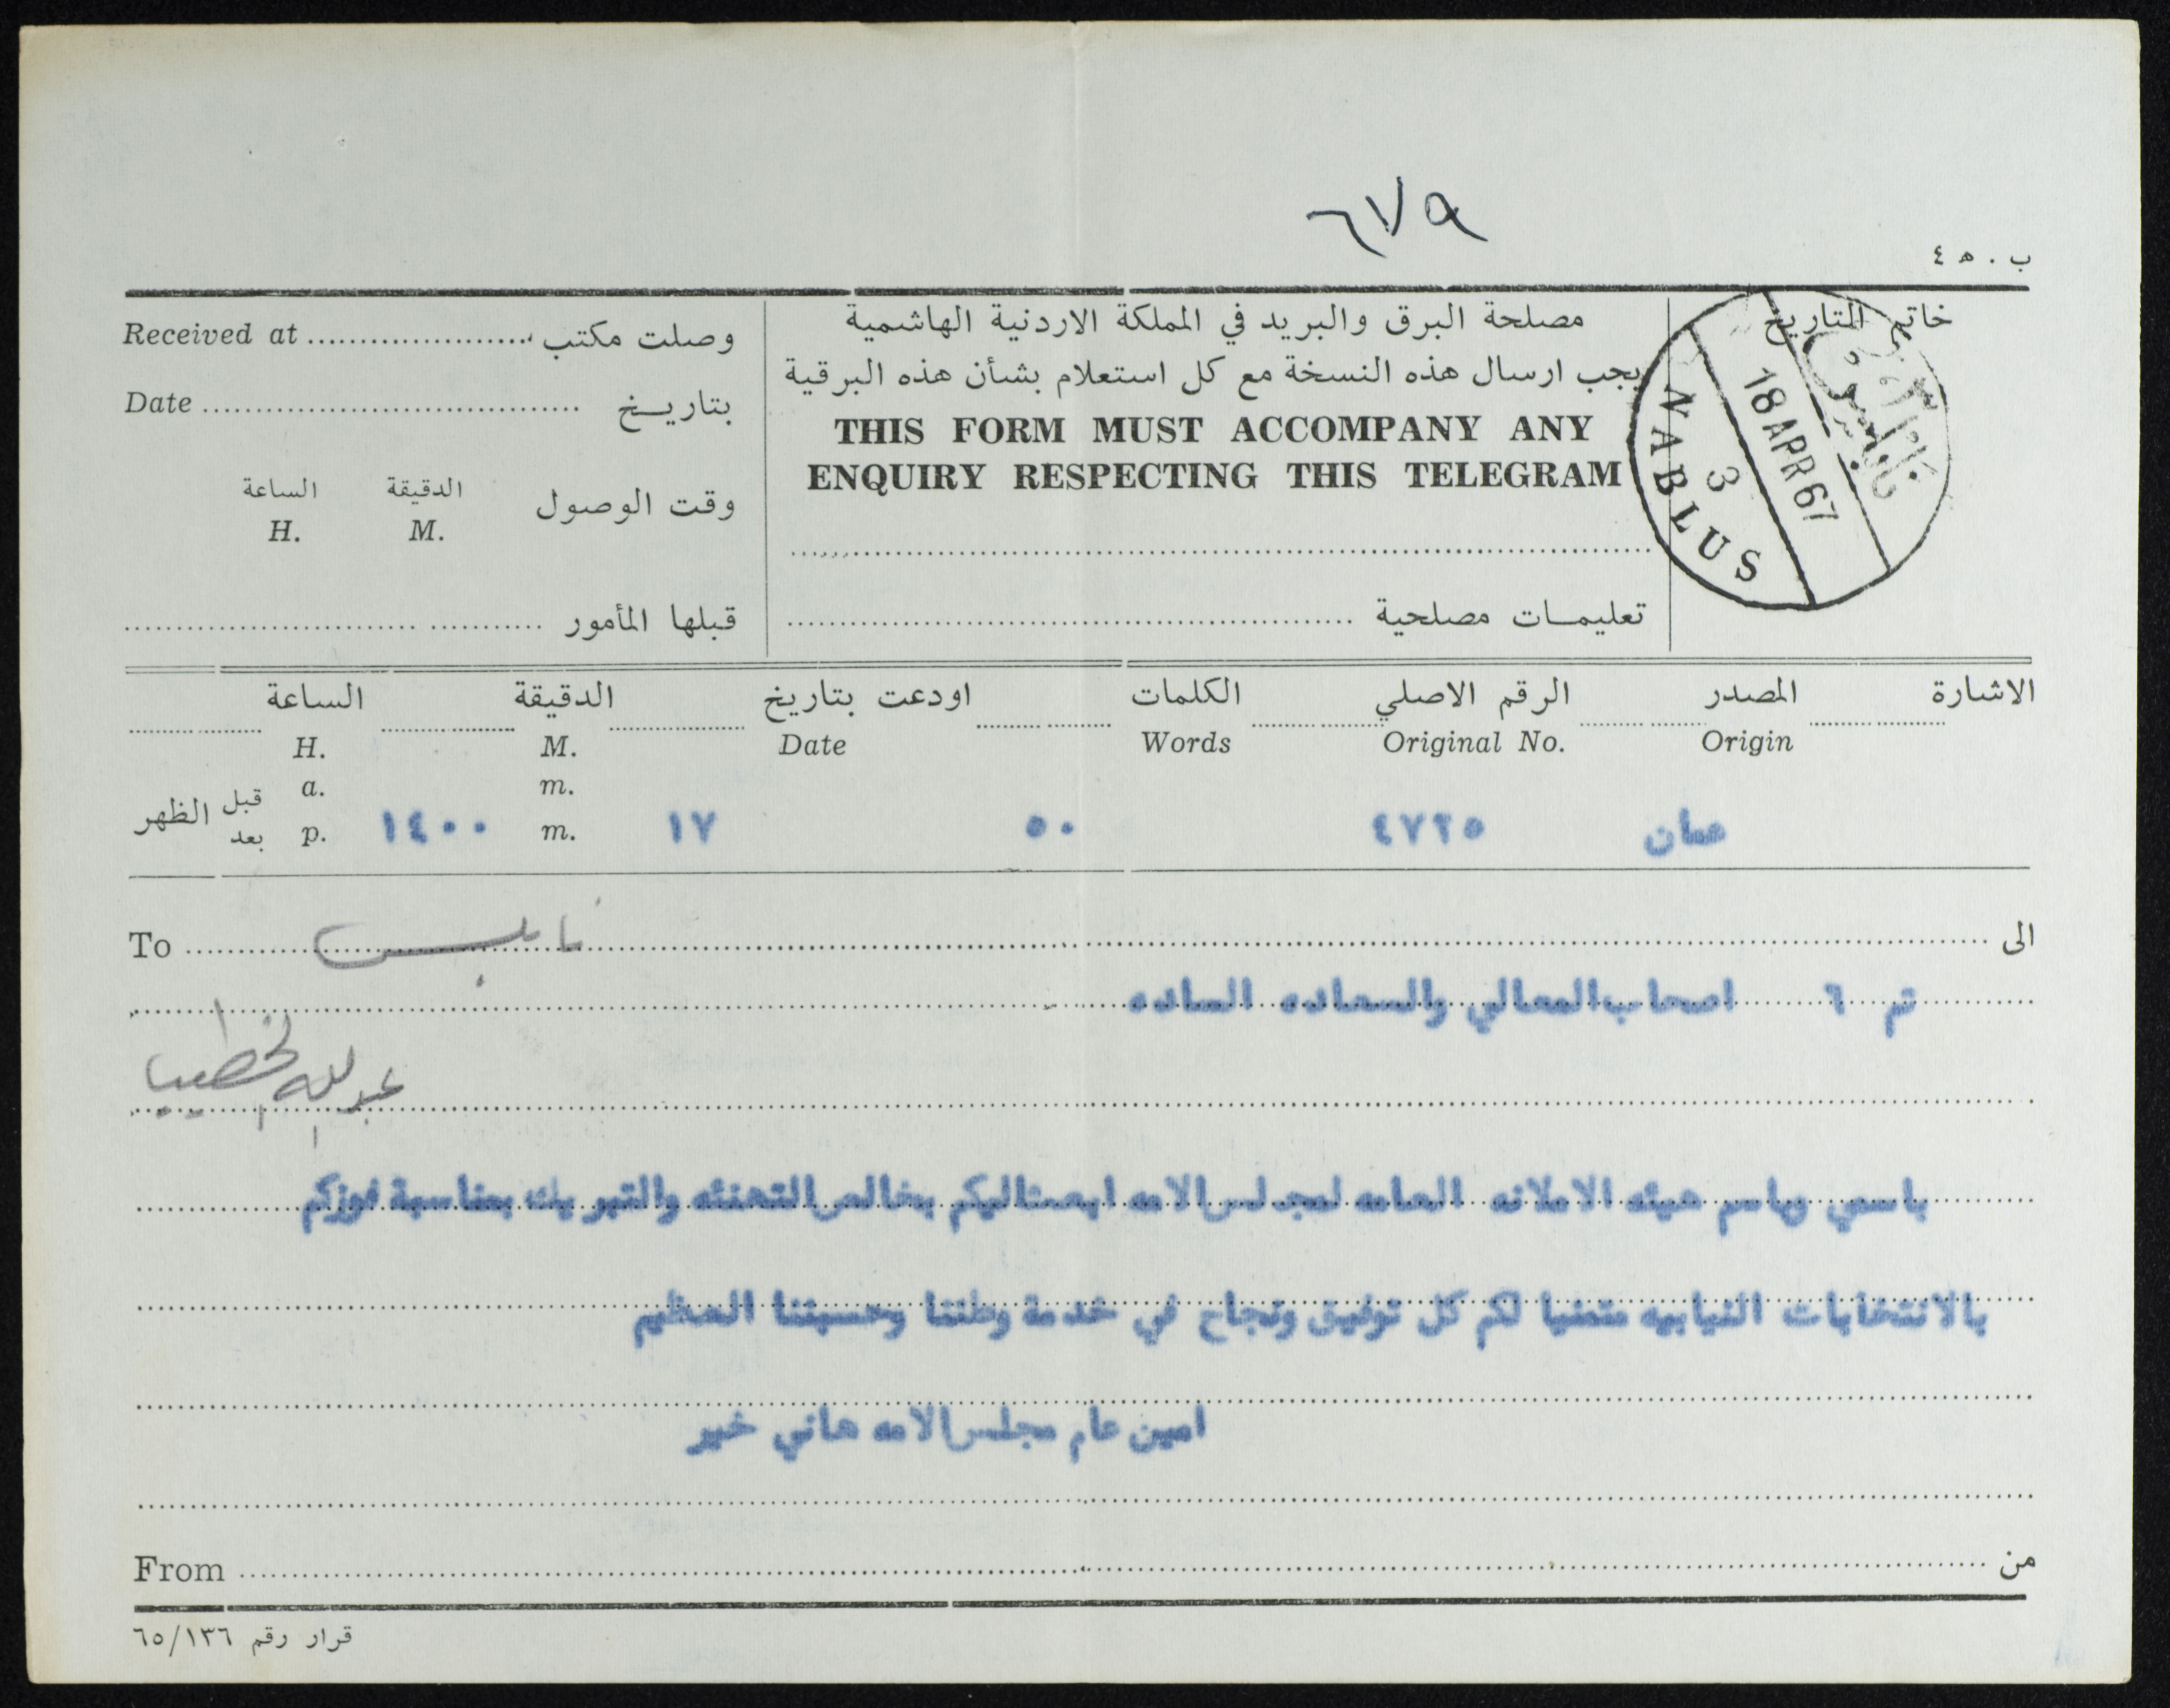 ٦٧٩
ب ٤٥٠
خاتم التاريخ
NABLUS
3
18 APR 67
نابلس
مصلحة البرق والبريد في المملكة الاردنية الهاشمية
يجب ارسال هذه النسخة مع كل استعلام بشأن هذه البرقية
THIS FORM MUST ACCOMPANY ANY
ENQUIRY RESPECTING THIS TELEGRAM
تعليمات مصلحية
Received at وصلت مكتب
Date بتاريخ
الساعة الدقيقة وقت الوصول
H. M.
قبلها المأمور
الاشارة المصدر الرقم الاصلي الكلمات اودعت بتاريخ الدقيقة الساعة
Origin Original No. Words Date M. H.
m. a.
عمان ٤٧٢٥ ٥٠ ١٧ m. ١٤٠٠ p. قبل بعد الظهر
To نابلس الى
تم ٦ اصحاب المعالي والسعاده الساده
عبدالله الخطيب
باسمي وباسم هيئه الامانه العامه لمجلس الامه ابعث اليكم بخالص التهنئه والتبريك بمناسبة فوزكم
بالانتخابات النيابيه متمنيا لكم كل توفيق ونجاح في خدمة وطننا وحسيننا العظيم
امين عام مجلس الامه هاني خير
From من
قرار رقم ٦٥/١٣٦